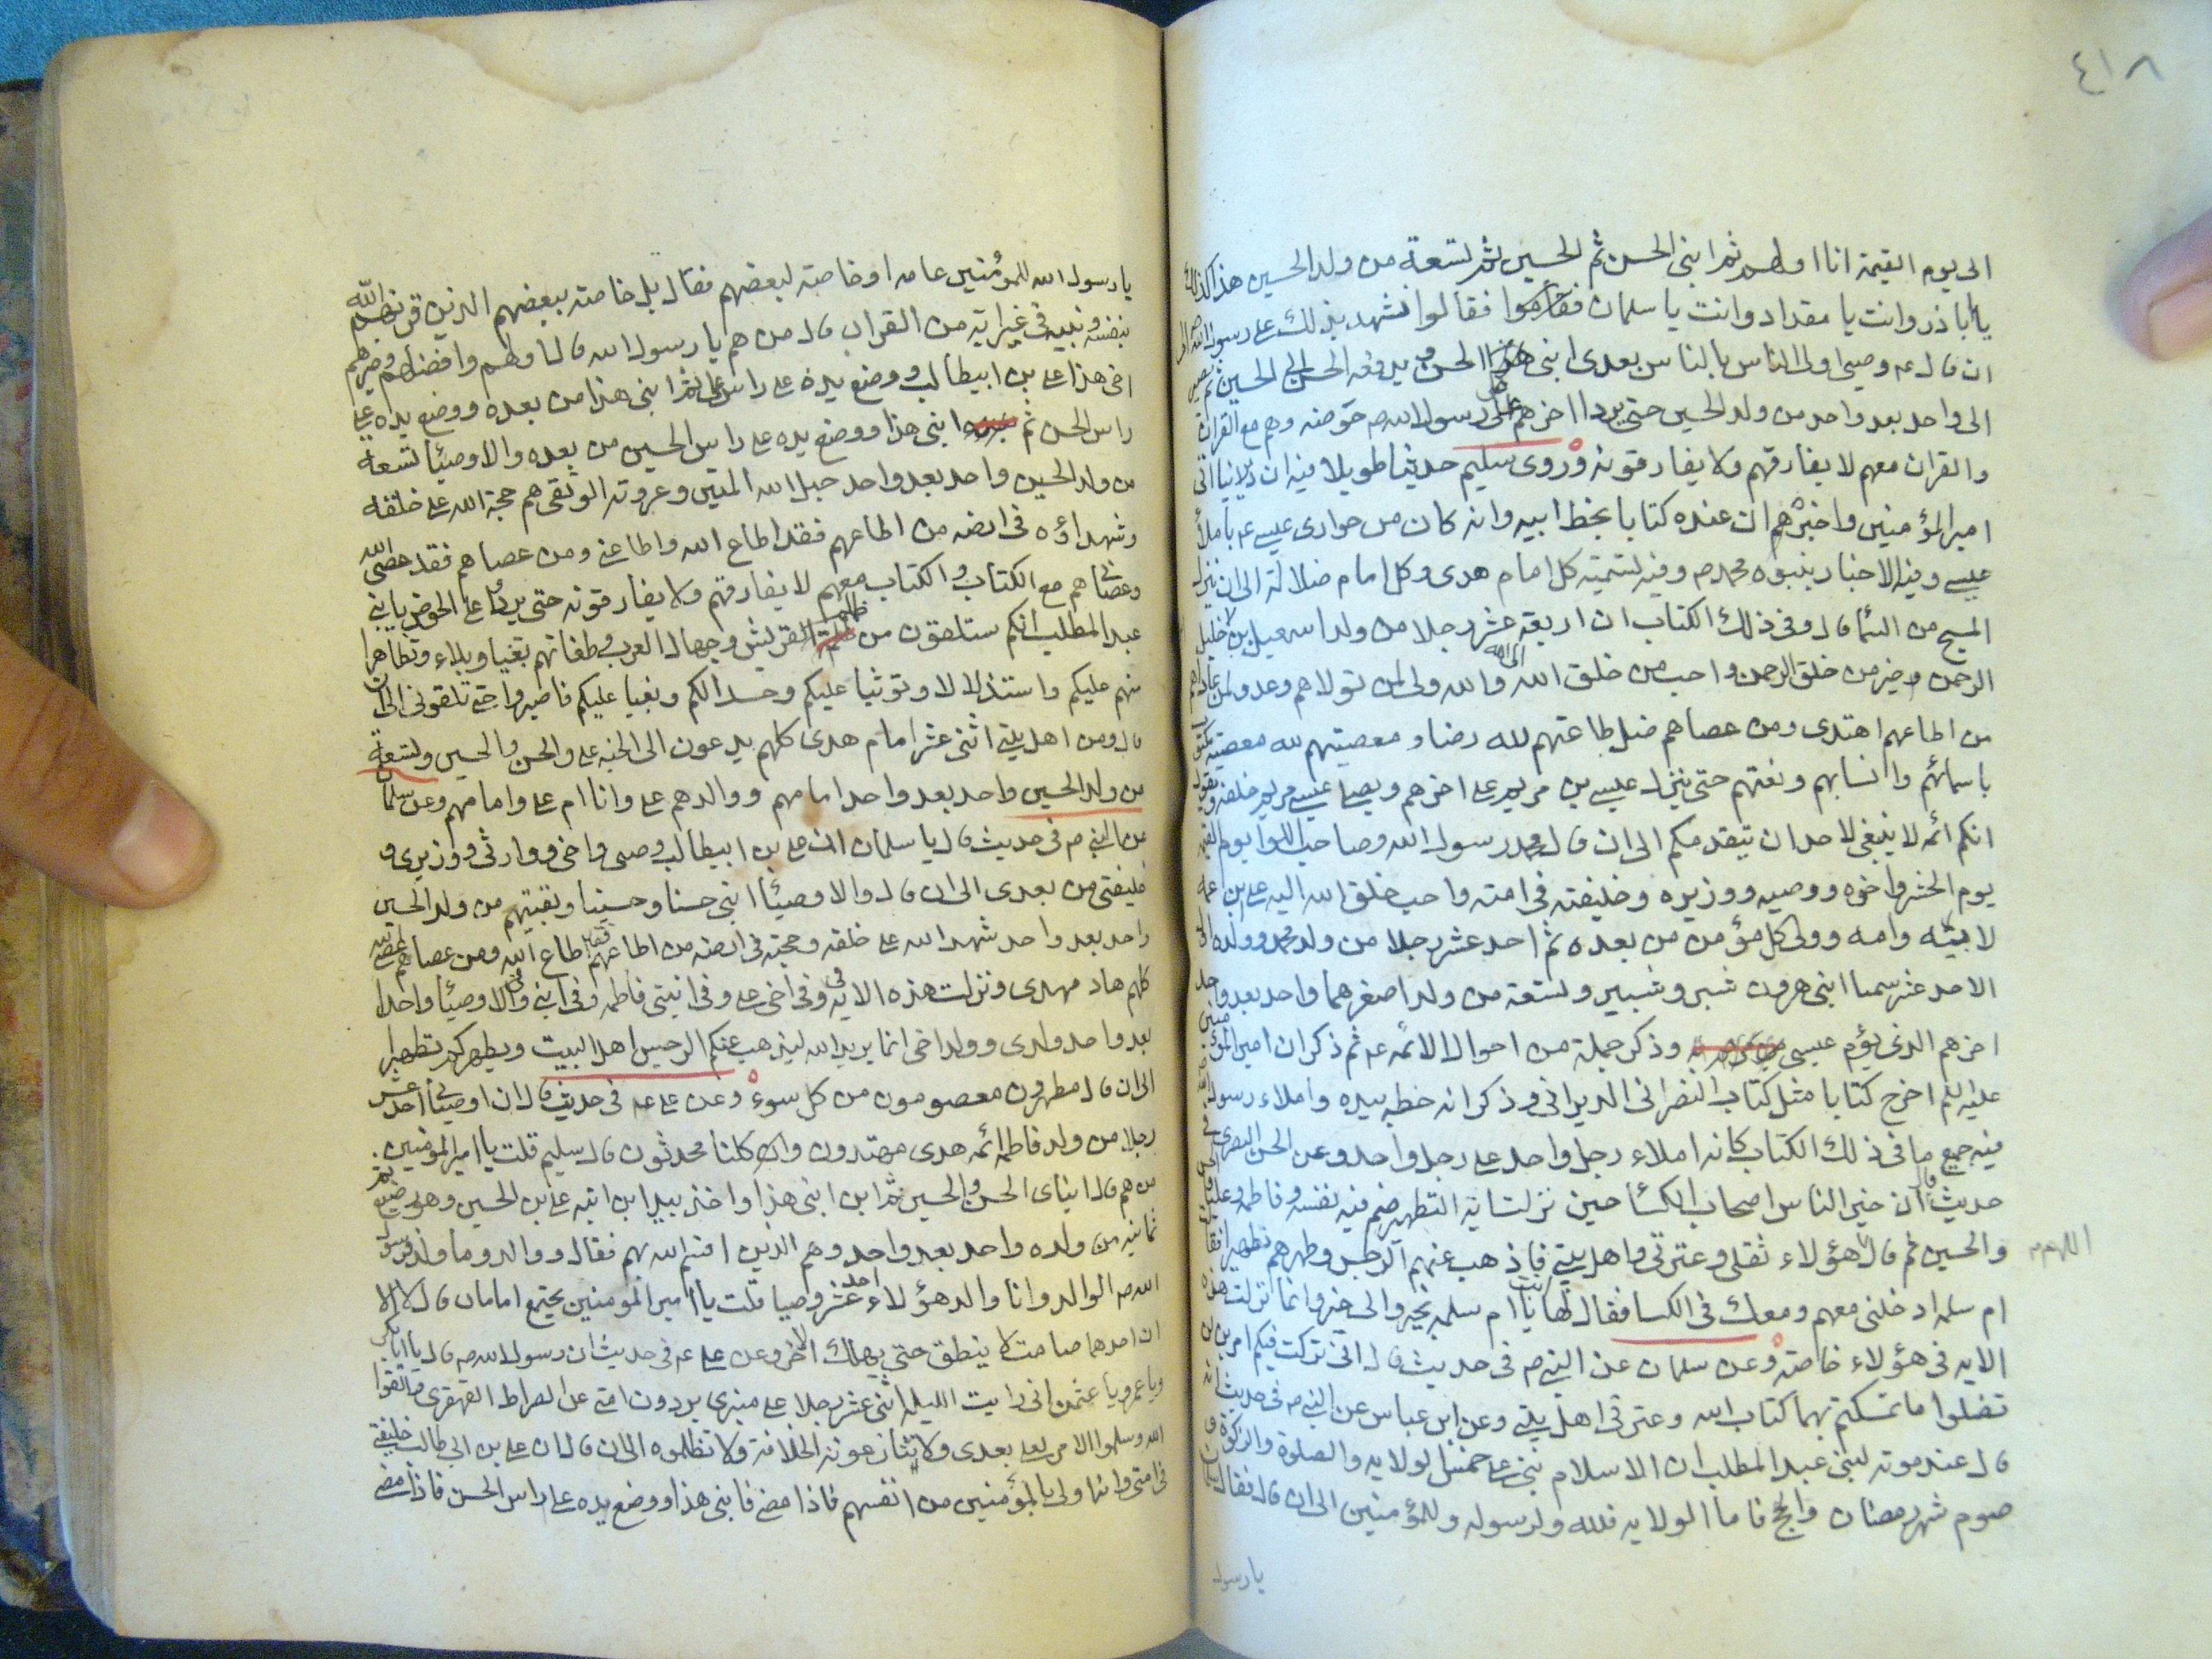 ٤١٨
الى يوم القيمة انا اولهم ثم ابنى الحسن ثم الحسين ثم تسعة من ولد الحسين هذا كذلك
يا اباذر وانت يا مقداد وانت يا سلمان فقاموا فقالوا نشهد بذلك على رسول الله ص الى
ان قال عم وصيى اولى الناس بالناس بعدى ابنى الحسن ثم يدفعه الحسن الى الحسين ثم يصير
الى واحد بعد واحد من ولد الحسين حتى يردا اخرهم على رسول الله ص حوضه وهم مع القران
والقران معهم لا يفارقهم ولا يفارقونه وروى سليم حديثا طويلا فيه ان اتى
امير المؤمنين واخبرهم ان عنده كتابا بخط ابيه وانه كان من حوارى عيسى عم باملاء
عيسى وفيه الاخبار بنبوه محمد ص وفيه تسمية كل امام هدى وكل امام ضلالة الى ان ينزل
المسيح من السما قال وفى ذلك الكتاب ان اربعة عشر رجلا من ولد اسمعيل بن خليل
الرحمن وخير من خلق الرحمن واحب من خلق الله الى الله والله ولى لمن تولاهم وعدو لمن عاداهم
من اطاعهم اهتدى ومن عصاهم ضل طاعتهم لله رضا ومعصيتهم لله معصية
باسمائهم وانسابهم ونعتهم حتى ينزل عيسى بن مريم على اخرهم ويصلى عيسى مريم خلفه ويقول
انكم ائمه لا ينبغى لاحد ان يتقدمكم الى ان قال محمد رسول الله وصاحب اللوا يوم القيمة
يوم الحشر واخوه ووصيه ووزيره وخليفته فى امته واحب خلق الله اليه على بن عمه
لابيه وامه وولى كل مؤمن من بعده ثم احد عشر رجلا من ولد محمد وولده
الاحد عشر سميا ابنى هرون شبر وشبير وتسعة من ولد اصغرهما واحد بعد واحد
اخرهم الذى يؤم عيسى وذكر جملة من احوال الائمه عم ثم ذكر ان امير المؤمنين
عليه السلم اخرج كتابا مثل كتاب النصرانى الديرانى وذكر انه خطه بيده واملاء رسول
فيه جميع ما فى ذلك الكتاب كانه املاء رجل واحد على رجل واحد وعن الحسن البصرى فى
حديث قال ان خير الناس اصحاب الكسا حين نزلت اية التطهير ضم فيه نفسه وفاطمة وعليا والحسن
والحسين ثم قال هؤلاء ثقلى وعترتى واهل بيتى فاذهب عنهم الرجس وطهرهم تطهيرا فقالت
اللهم
ام سلمه ادخلنى معهم ومعك فى الكسا فقال لها يا ام سلمه انت بخير والى خير وانما نزلت هذه
الايه فى هؤلاء خاصة وعن سلمان عن النبى ص فى حديث قال انى تركت فيكم امرين لن
تضلوا ما تمسكتم بهما كتاب الله وعترتى اهل بيتى وعن ابن عباس عن النبى ص فى حديث انه
قال عند موته لبنى عبد المطلب ان الاسلام بنى على خمس الولايه والصلوة والزكوة و
صوم شهر رمضان والحج فاما الولايه فلله ولرسوله وللمؤمنين الى ان قال فقال سلمان
يا رسول
يا رسول الله للمؤمنين عامه او خاصة لبعضهم فقال بل خاصته ببعضهم الذين قرنهم الله
بنفسه ونبيه فى غير اية من القران قال من هم يا رسول الله قال اولهم وافضلهم وخيرهم
اخى هذا على بن ابيطالب ووضع يده على راس على ثم ابنى هذا من بعده ووضع يده على
راس الحسن ثم ابنى هذا ووضع يده على راس الحسين من بعده والاوصيئا تسعة
من ولد الحسين واحد بعد واحد حبل الله المتين وعروته الوثقى هم حجة الله على خلقه
وشهداؤه فى ارضه من اطاعهم فقد اطاع الله واطاعنى ومن عصاهم فقد عصى الله
وعصانى هم مع الكتاب والكتاب معهم لا يفارقهم ولا يفارقونه حتى يردا على الحوض يا بنى
عبد المطلب انكم ستلقون من ظلمة القريش وجهال العرب وطغاتهم بغيا وبلاء وتظاهرا
منهم عليكم واستذلالا وتوثبا عليكم وحسدا لكم وبغيا عليكم فاصبروا حتى تلقونى الى ان
قال ومن اهل بيتى اثنى عشر امام هدى كلهم يدعون الى الجنه على والحسن والحسين وتسعة
من ولد الحسين واحد بعد واحد امامهم ووالدهم على وانا ام على وامامهم وعن سلمان
عن النبى ص فى حديث قال يا سلمان ان على بن ابيطالب وصيى واخى ووارثى ووزيرى و
خليفتى من بعدى الى ان قال والاوصيئا ابنى حسنا وحسينا وبقيتهم من ولد الحسين
واحد بعد واحد شهدا لله على خلقه وحجته فى ارضه من اطاعهم فقد اطاع الله ومن عصاهم عصى الله
كلهم هاد مهدى ونزلت هذه الايه فى وفى اخى على وفى ابنتى فاطمه وفى ابنى وفى الاوصيئا واحدا
بعد واحد ولدى وولد اخى انما يريد الله ليذهب عنكم الرجس اهل البيت ويطهركم تطهيرا
الى ان قال مطهرون معصومون من كل سوء وعن على عم فى حديث قال ان اوصيئى احد عشر
رجلا من ولد فاطمه ائمه هدى مهتدون وان كلنا محدثون قال سليم قلت يا امير المؤمنين
من هم قال ابناى الحسن والحسين ثم ابن ابنى هذا واخذ بيد ابن ابنه على بن الحسين وهو رضيع ثم
ثمانيه من ولده واحد بعد واحد وهم الذين اقسم الله بهم فقال ووالد وما ولد فرسول
الله ص الوالد وانا والد هؤلاء احد عشر وصيا قلت يا امير المؤمنين يجتمع امامان قال لا الا
ان احدهما صامت لا ينطق حتى يهلك الاخر وعن على عم فى حديث ان رسول الله ص قال يا ابابكر
ويا عمر ويا عثمن انى رايت الليله اثنى عشر رجلا على منبرى يردون امتى عن الصراط القهقرى فاتقوا
الله وسلموا الامر لعلى بعدى ولا تنازعونه الخلافة ولا تظلموه الى ان قال ان على بن ابى طالب خليفتى
فى امتى وانما ولى بالمؤمنين من انفسهم فاذا مضى فابنى هذا ووضع يده على راس الحسن فاذا مضى